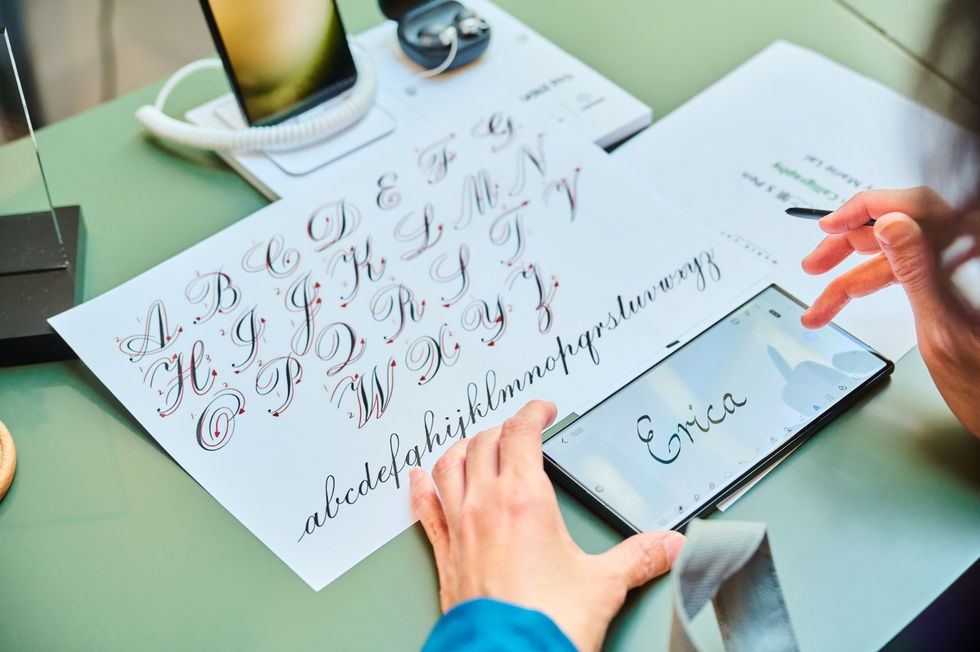 A B C D E F G
H I J K L M N
O P Q R S T V
W X Y Z
abcdefghijklmnopqrstuvwxyz
Erica
S Pen
Calligraphy
Marie Lai